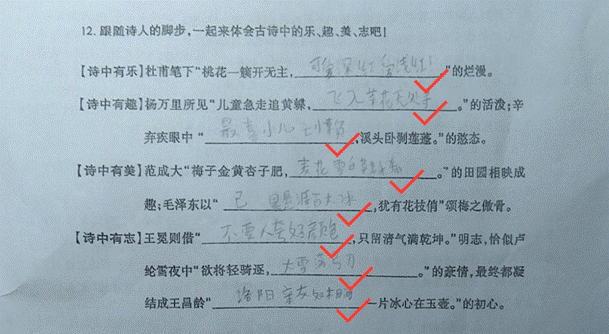 12. 跟随诗人的脚步,一起来体会古诗中的乐、趣、美、志吧!
【诗中有乐】杜甫笔下“桃花一簇开无主, 可爱深红爱浅红! ”的烂漫。
【诗中有趣】杨万里所见“儿童急走追黄蝶, 飞入菜花无处寻 。”的活泼;辛
弃疾眼中“ 最喜小儿 ,溪头卧剥莲蓬。”的憨态。
【诗中有美】范成大“梅子金黄杏子肥, 麦花雪白菜 。”的田园相映成
趣;毛泽东以“ 已 悬崖百丈冰 ,犹有花枝俏”颂梅之傲骨。
【诗中有志】王冕则借“ 不要人夸好颜色 ,只留清气满乾坤。”明志,恰似卢
纶雪夜中“欲将轻骑逐, 大雪 弓刀 。”的豪情,最终都凝
结成王昌龄“ 洛阳亲友如相问 一片冰心在玉壶。”的初心。